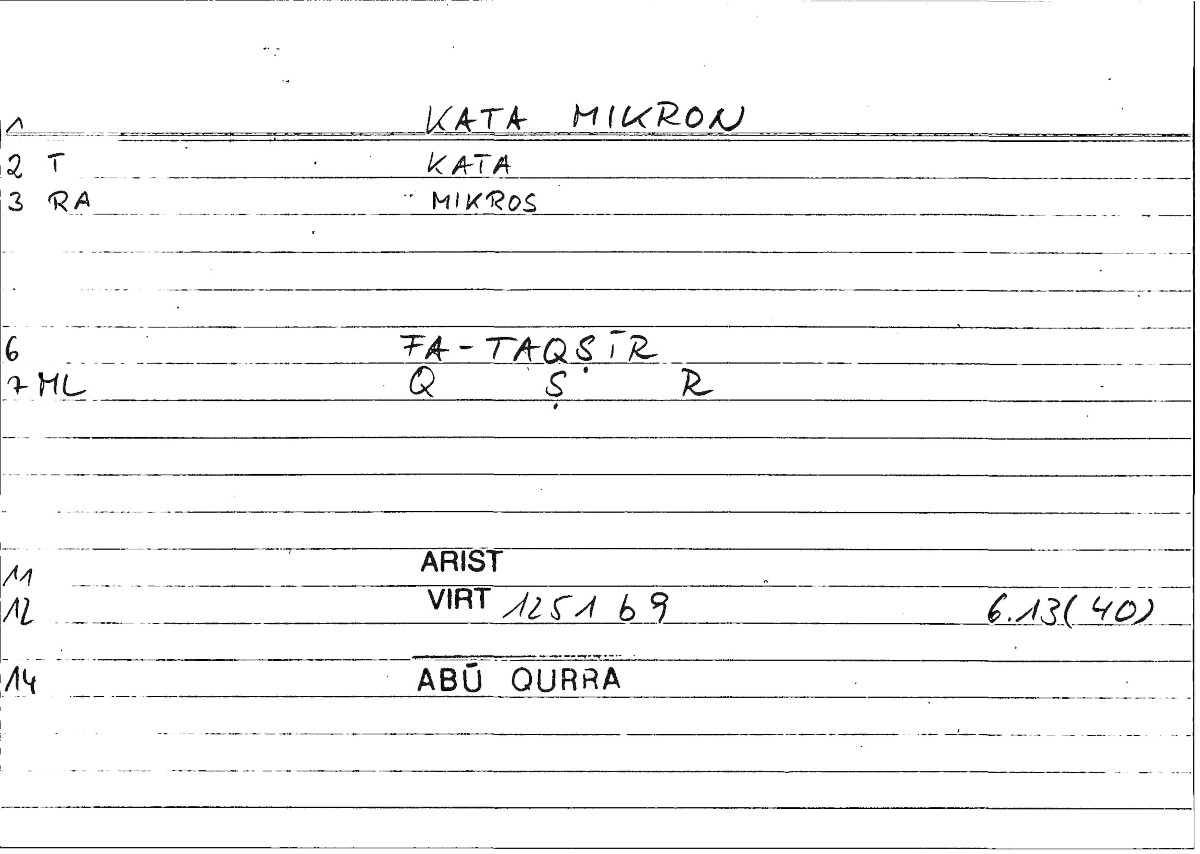 1 KATA MIKRON
2 T KATA
3 RA MIKROS
6 FA-TAQṢĪR
7 ML Q Ṣ R
11 ARIST
12 VIRT 1251 b 9 6.13(40)
14 ABŪ QURRA